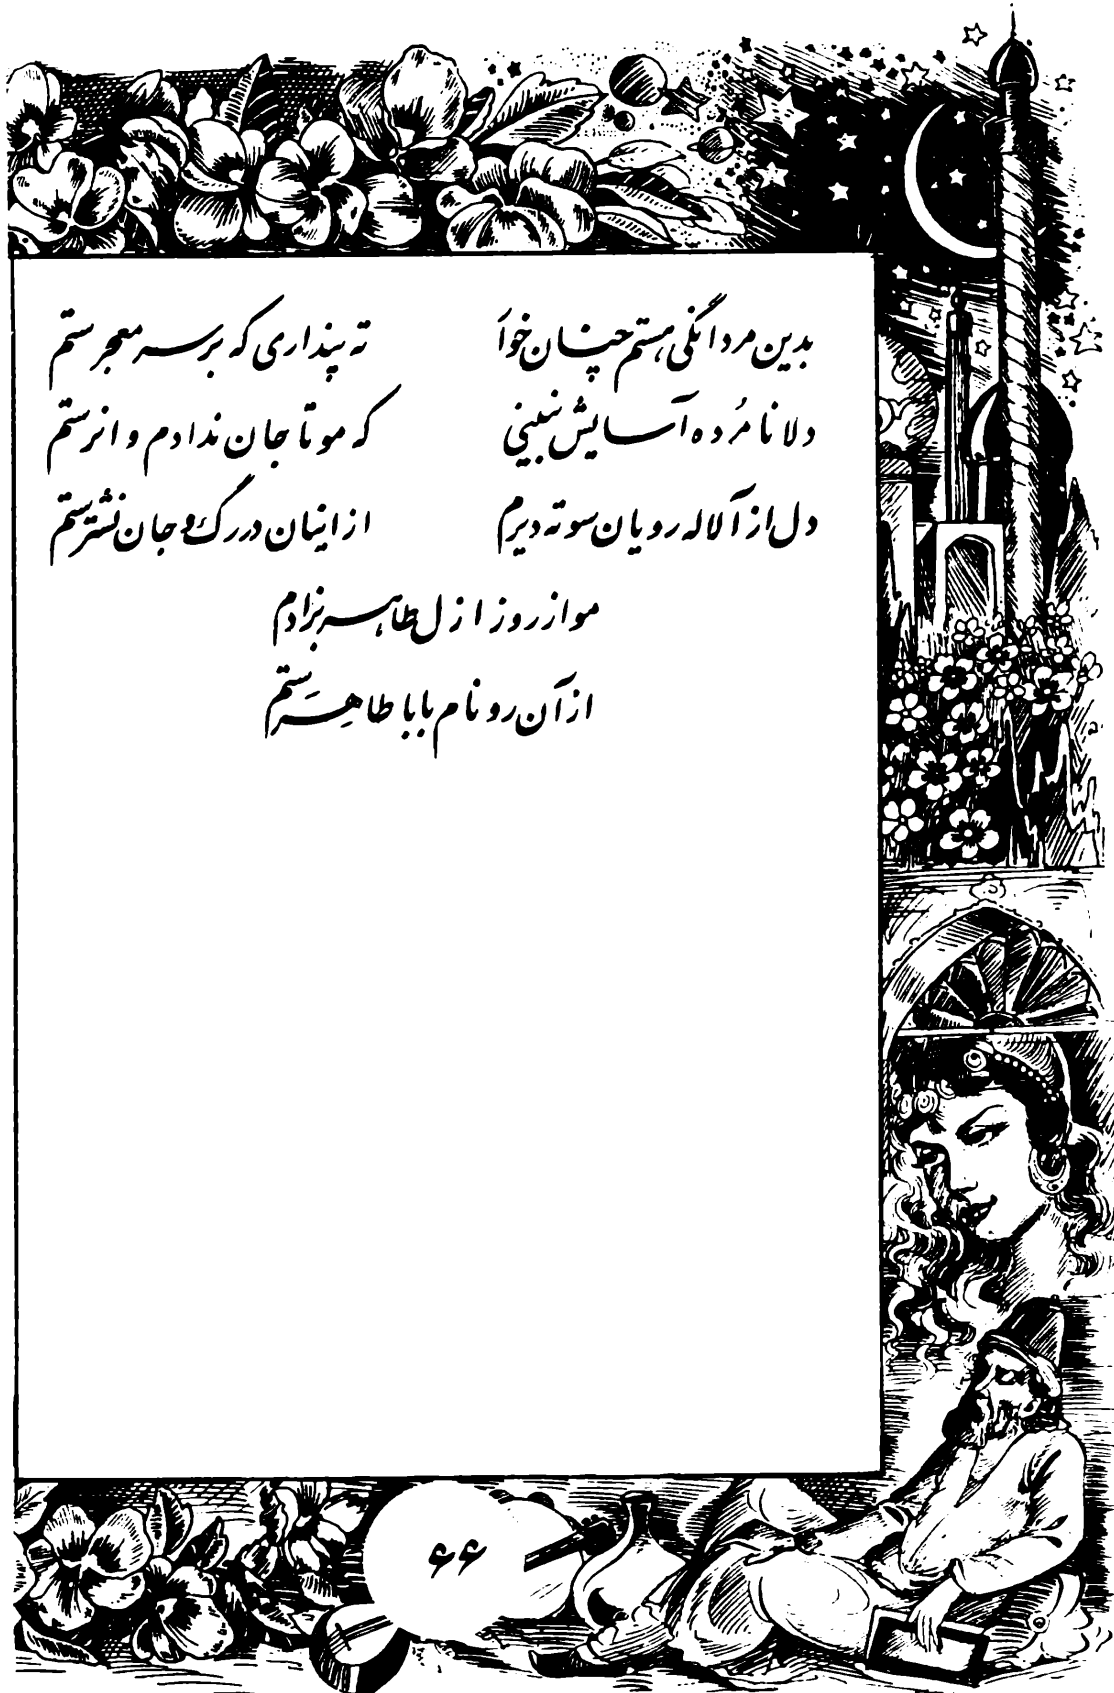 بدین مردانگی هستم چنان خوار ته پنداری که بر سر معجرستم
دلا نامُرده آسایش نبینی که مو تا جان ندادم وانرستم
دل از آلاله رویان سوته دیرم از اینان در رگ و جان نشترستم
مو از روز ازل طاهر بزادم
از آن رو نام بابا طاهِرَستم
۶۶